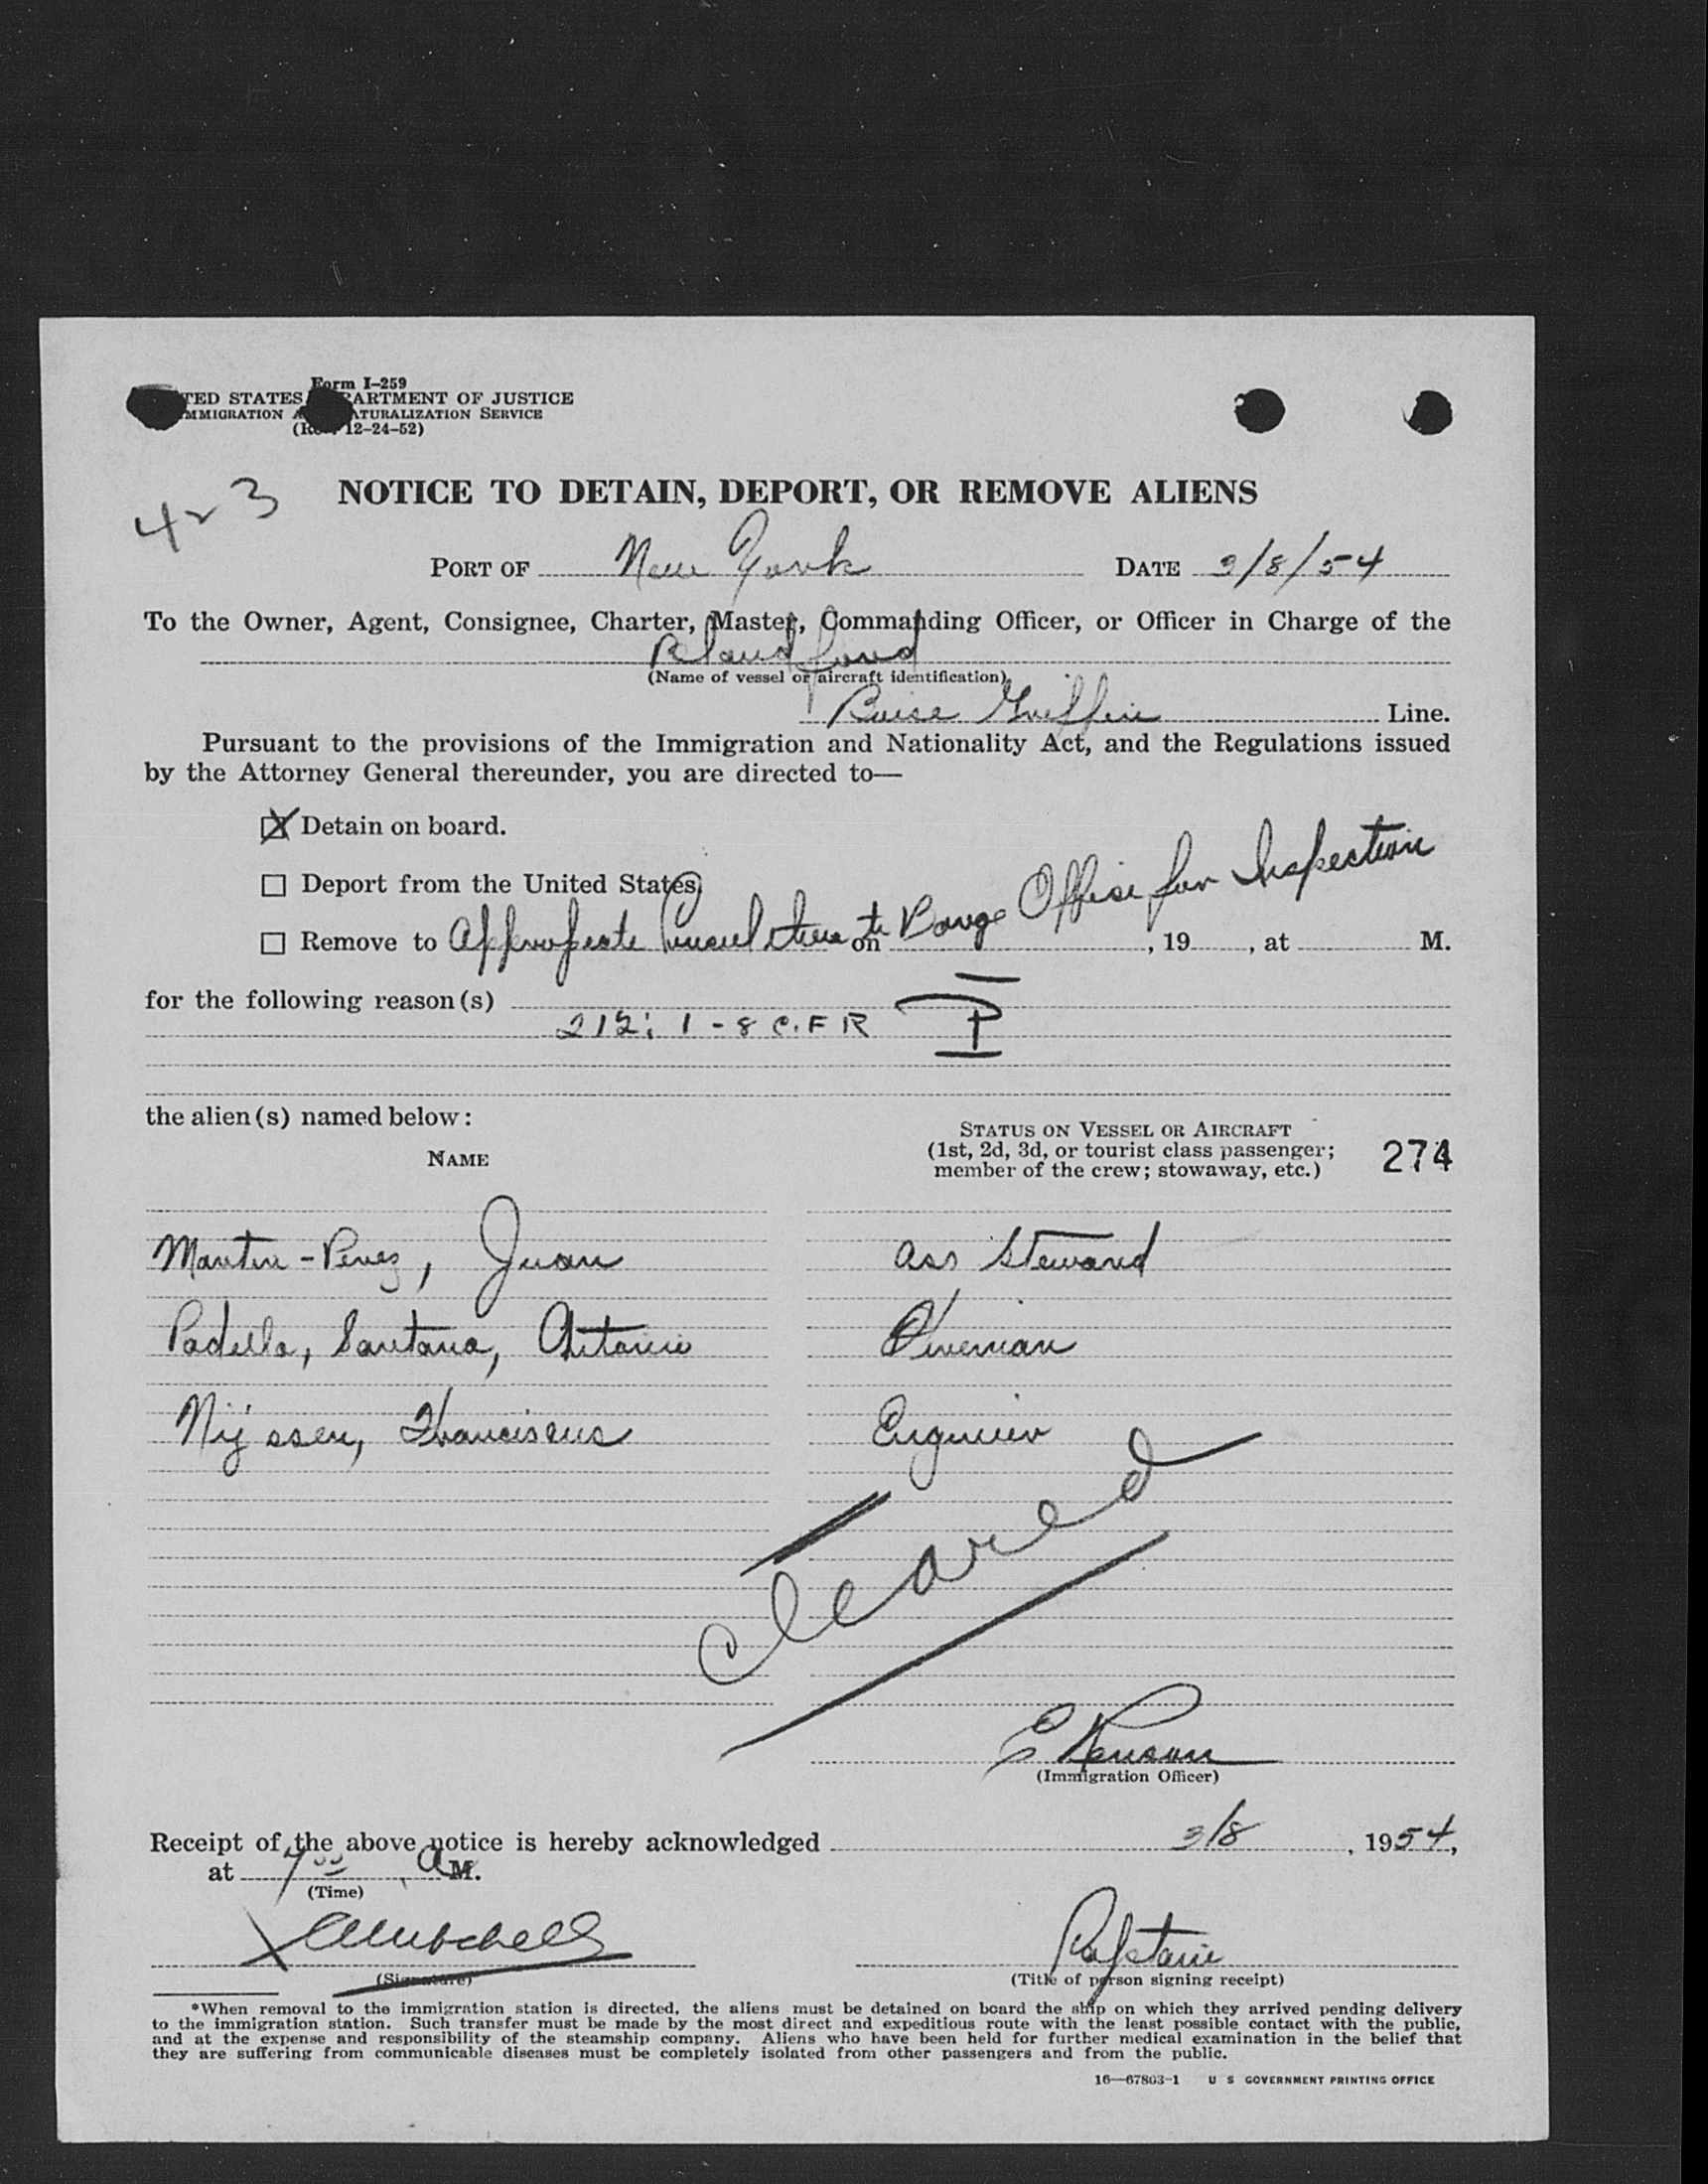 Form I-259
TED STATES ARTMENT OF JUSTICE
MMIGRATION A ATURALIZATION SERVICE
12-24-52)
423
NOTICE TO DETAIN, DEPORT, OR REMOVE ALIENS
PORT OF New York DATE 3/8/54
To the Owner, Agent, Consignee, Charter, Master, Commanding Officer, or Officer in Charge of the
(Name of vessel or aircraft identification)
Line.
Pursuant to the provisions of the Immigration and Nationality Act, and the Regulations issued
by the Attorney General thereunder, you are directed to—
☒ Detain on board.
☐ Deport from the United States
☐ Remove to to Barge Office for Inspection
on , 19 , at M.
for the following reason(s)
212; 1 - 8 C.F R
the alien(s) named below:
NAME
STATUS ON VESSEL OR AIRCRAFT
(1st, 2d, 3d, or tourist class passenger;
member of the crew; stowaway, etc.)
274
Martin-Perez, Juan Ass Steward
Padilla, Santana, Antonio Fireman
Nijssen, Franciscus Engineer
Cleared
E
(Immigration Officer)
Receipt of the above notice is hereby acknowledged 3/8, 1954,
at 7 00 A M.
(Time)
X
(Signature)
(Title of person signing receipt)
*When removal to the immigration station is directed, the aliens must be detained on board the ship on which they arrived pending delivery
to the immigration station. Such transfer must be made by the most direct and expeditious route with the least possible contact with the public,
and at the expense and responsibility of the steamship company. Aliens who have been held for further medical examination in the belief that
they are suffering from communicable diseases must be completely isolated from other passengers and from the public.
16—67803-1 U S GOVERNMENT PRINTING OFFICE